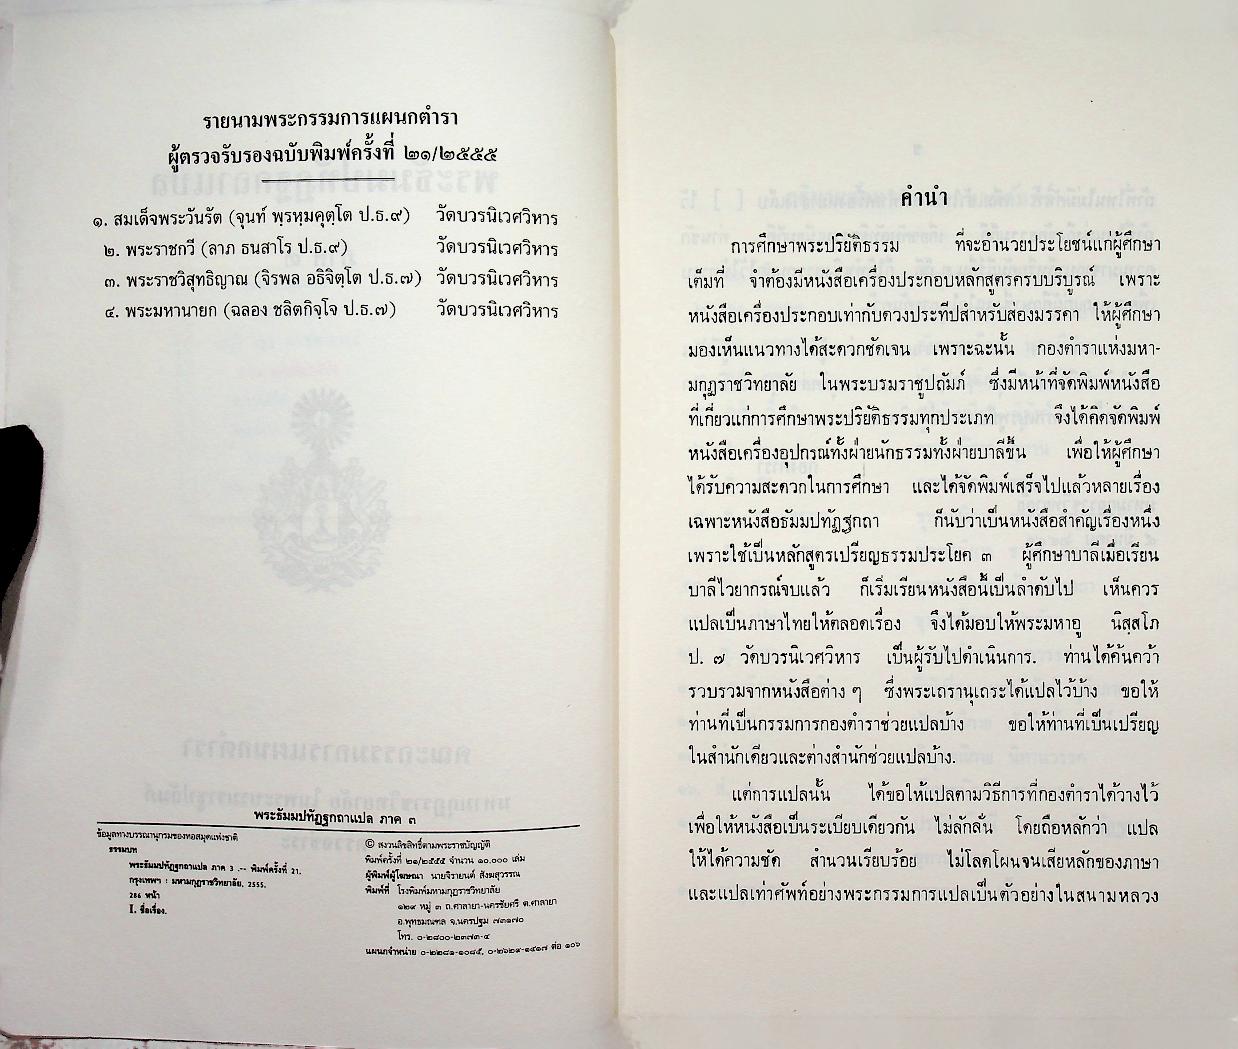 รายนามพระกรรมการแผนกตำรา
ผู้ตรวจรับรองฉบับพิมพ์ครั้งที่ ๒๑/๒๕๕๕
๑. สมเด็จพระวันรัต (จุนท์ พฺรหฺมคุตฺโต ป.ธ.๙) วัดบวรนิเวศวิหาร
๒. พระราชกวี (ลาภ ธนสาโร ป.ธ.๙) วัดบวรนิเวศวิหาร
๓. พระราชวิสุทธิญาณ (จิรพล อธิจิตฺโต ป.ธ.๗) วัดบวรนิเวศวิหาร
๔. พระมหานายก (ฉลอง ชลิตกิจฺโจ ป.ธ.๗) วัดบวรนิเวศวิหาร
พระธัมมปทัฏฐกถาแปล ภาค ๓
ข้อมูลทางบรรณานุกรมของหอสมุดแห่งชาติ
ธรรมบท
พระธัมมปทัฏฐกถาแปล ภาค 3 .-- พิมพ์ครั้งที่ 21.
กรุงเทพฯ : มหามกุฏราชวิทยาลัย, 2555.
286 หน้า
I. ชื่อเรื่อง.
© สงวนลิขสิทธิ์ตามพระราชบัญญัติ
พิมพ์ครั้งที่ ๒๑/๒๕๕๕ จำนวน ๑๐,๐๐๐ เล่ม
ผู้พิมพ์ผู้โฆษณา นายจิรายนต์ สังฆสุวรรณ
พิมพ์ที่ โรงพิมพ์มหามกุฏราชวิทยาลัย
๑๒๙ หมู่ ๓ ถ.ศาลายา-นครชัยศรี ต.ศาลายา
อ.พุทธมณฑล จ.นครปฐม ๗๓๑๗๐
โทร. ๐-๒๘๐๐-๒๓๗๓-๔
แผนกจำหน่าย ๐-๒๒๘๑-๑๐๘๕, ๐-๒๖๒๙-๑๔๑๗ ต่อ ๑๐๖
คำนำ
การศึกษาพระปริยัติธรรม ที่จะอำนวยประโยชน์แก่ผู้ศึกษา
เต็มที่ จำต้องมีหนังสือเครื่องประกอบหลักสูตรครบบริบูรณ์ เพราะ
หนังสือเครื่องประกอบเท่ากับดวงประทีปสำหรับส่องมรรคา ให้ผู้ศึกษา
มองเห็นแนวทางได้สะดวกชัดเจน เพราะฉะนั้น กองตำราแห่งมหา-
มกุฏราชวิทยาลัย ในพระบรมราชูปถัมภ์ ซึ่งมีหน้าที่จัดพิมพ์หนังสือ
ที่เกี่ยวแก่การศึกษาพระปริยัติธรรมทุกประเภท จึงได้คิดจัดพิมพ์
หนังสือเครื่องอุปกรณ์ทั้งฝ่ายนักธรรมทั้งฝ่ายบาลีขึ้น เพื่อให้ผู้ศึกษา
ได้รับความสะดวกในการศึกษา และได้จัดพิมพ์เสร็จไปแล้วหลายเรื่อง
เฉพาะหนังสือธัมมปทัฏฐกถา ก็นับว่าเป็นหนังสือสำคัญเรื่องหนึ่ง
เพราะใช้เป็นหลักสูตรเปรียญธรรมประโยค ๓ ผู้ศึกษาบาลีเมื่อเรียน
บาลีไวยากรณ์จบแล้ว ก็เริ่มเรียนหนังสือนี้เป็นลำดับไป เห็นควร
แปลเป็นภาษาไทยให้ตลอดเรื่อง จึงได้มอบให้พระมหาอู นิสฺสโภ
ป. ๗ วัดบวรนิเวศวิหาร เป็นผู้รับไปดำเนินการ. ท่านได้ค้นคว้า
รวบรวมจากหนังสือต่าง ๆ ซึ่งพระเถรานุเถระได้แปลไว้บ้าง ขอให้
ท่านที่เป็นกรรมการกองตำราช่วยแปลบ้าง ขอให้ท่านที่เป็นเปรียญ
ในสำนักเดียวและต่างสำนักช่วยแปลบ้าง.
แต่การแปลนั้น ได้ขอให้แปลตามวิธีการที่กองตำราได้วางไว้
เพื่อให้หนังสือเป็นระเบียบเดียวกัน ไม่ลักลั่น โดยถือหลักว่า แปล
ให้ได้ความชัด สำนวนเรียบร้อย ไม่โลดโผนจนเสียหลักของภาษา
และแปลเท่าศัพท์อย่างพระกรรมการแปลเป็นตัวอย่างในสนามหลวง